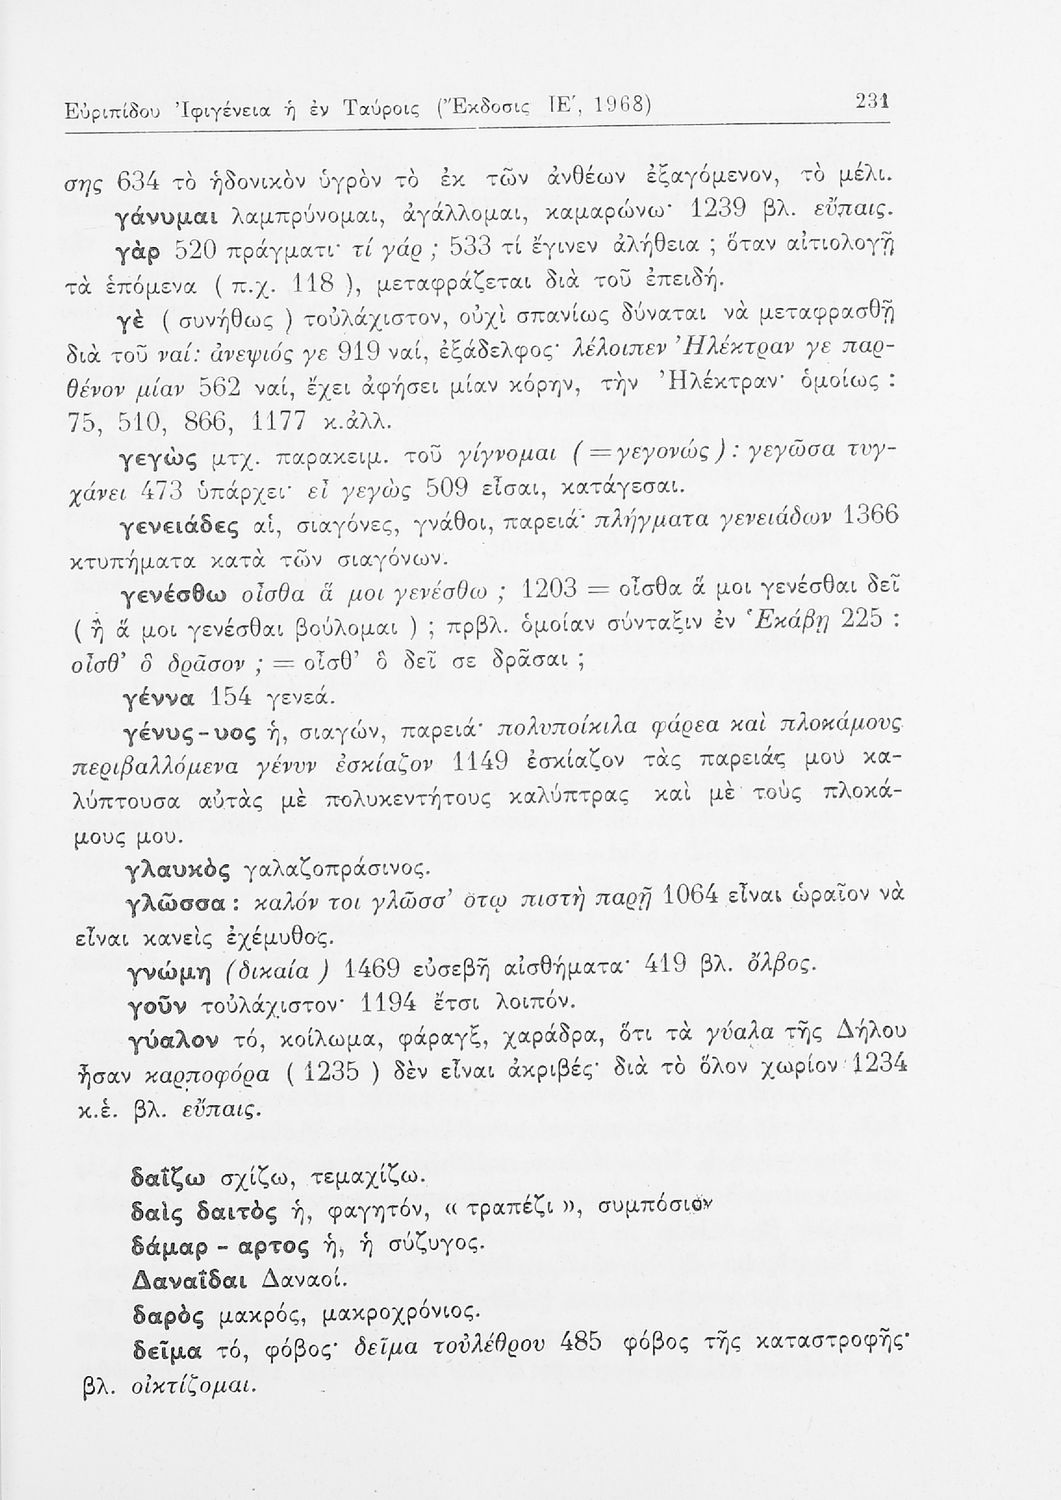 Εὐριπίδου Ἰφιγένεια ἡ ἐν Ταύροις (Ἔκδοσις ΙΕ΄, 1968) 231
σης 634 τὸ ἡδονικὸν ὑγρὸν τὸ ἐκ τῶν ἀνθέων ἐξαγόμενον, τὸ μέλι.
γάνυμαι λαμπρύνομαι, ἀγάλλομαι, καμαρώνω· 1239 βλ. εὔπαις.
γὰρ 520 πράγματι· τί γάρ ; 533 τί ἔγινεν ἀλήθεια ; ὅταν αἰτιολογῇ
τὰ ἑπόμενα ( π.χ. 118 ), μεταφράζεται διὰ τοῦ ἐπειδή.
γὲ ( συνήθως ) τοὐλάχιστον, οὐχὶ σπανίως δύναται νὰ μεταφρασθῇ
διὰ τοῦ ναί: ἀνεψιός γε 919 ναί, ἐξάδελφος· λέλοιπεν Ἠλέκτραν γε παρ-
θένον μίαν 562 ναί, ἔχει ἀφήσει μίαν κόρην, τὴν Ἠλέκτραν· ὁμοίως :
75, 510, 866, 1177 κ.ἀλλ.
γεγὼς μτχ. παρακειμ. τοῦ γίγνομαι ( = γεγονώς ) : γεγῶσα τυγ-
χάνει 473 ὑπάρχει· εἶ γεγὼς 509 εἶσαι, κατάγεσαι.
γενειάδες αἱ, σιαγόνες, γνάθοι, παρειά· πλήγματα γενειάδων 1366
κτυπήματα κατὰ τῶν σιαγόνων.
γενέσθω οἶσθα ἅ μοι γενέσθω ; 1203 = οἶσθα ἅ μοι γενέσθαι δεῖ
( ἢ ἅ μοι γενέσθαι βούλομαι ) ; πρβλ. ὁμοίαν σύνταξιν ἐν Ἑκάβῃ 225 :
οἶσθ’ ὃ δρᾶσον ; = οἶσθ’ ὃ δεῖ σε δρᾶσαι ;
γέννα 154 γενεά.
γένυς - υος ἡ, σιαγών, παρειά· πολυποίκιλα φάρεα καὶ πλοκάμους
περιβαλλόμενα γένυν ἐσκίαζον 1149 ἐσκίαζον τὰς παρειάς μου κα-
λύπτουσα αὐτὰς μὲ πολυκεντήτους καλύπτρας καὶ μὲ τοὺς πλοκά-
μους μου.
γλαυκὸς γαλαζοπράσινος.
γλῶσσα : καλόν τοι γλῶσσ’ ὅτῳ πιστὴ παρῇ 1064 εἶναι ὡραῖον νὰ
εἶναι κανεὶς ἐχέμυθος.
γνώμη (δικαία ) 1469 εὐσεβῆ αἰσθήματα· 419 βλ. ὄλβος.
γοῦν τοὐλάχιστον· 1194 ἔτσι λοιπόν.
γύαλον τό, κοίλωμα, φάραγξ, χαράδρα, ὅτι τὰ γύαλα τῆς Δήλου
ἦσαν καρποφόρα ( 1235 ) δὲν εἶναι ἀκριβές· διὰ τὸ ὅλον χωρίον 1234
κ.ἑ. βλ. εὔπαις.
δαΐζω σχίζω, τεμαχίζω.
δαὶς δαιτὸς ἡ, φαγητόν, « τραπέζι », συμπόσιον
δάμαρ - αρτος ἡ, ἡ σύζυγος.
Δαναΐδαι Δαναοί.
δαρὸς μακρός, μακροχρόνιος.
δεῖμα τό, φόβος· δεῖμα τοὐλέθρου 485 φόβος τῆς καταστροφῆς·
βλ. οἰκτίζομαι.